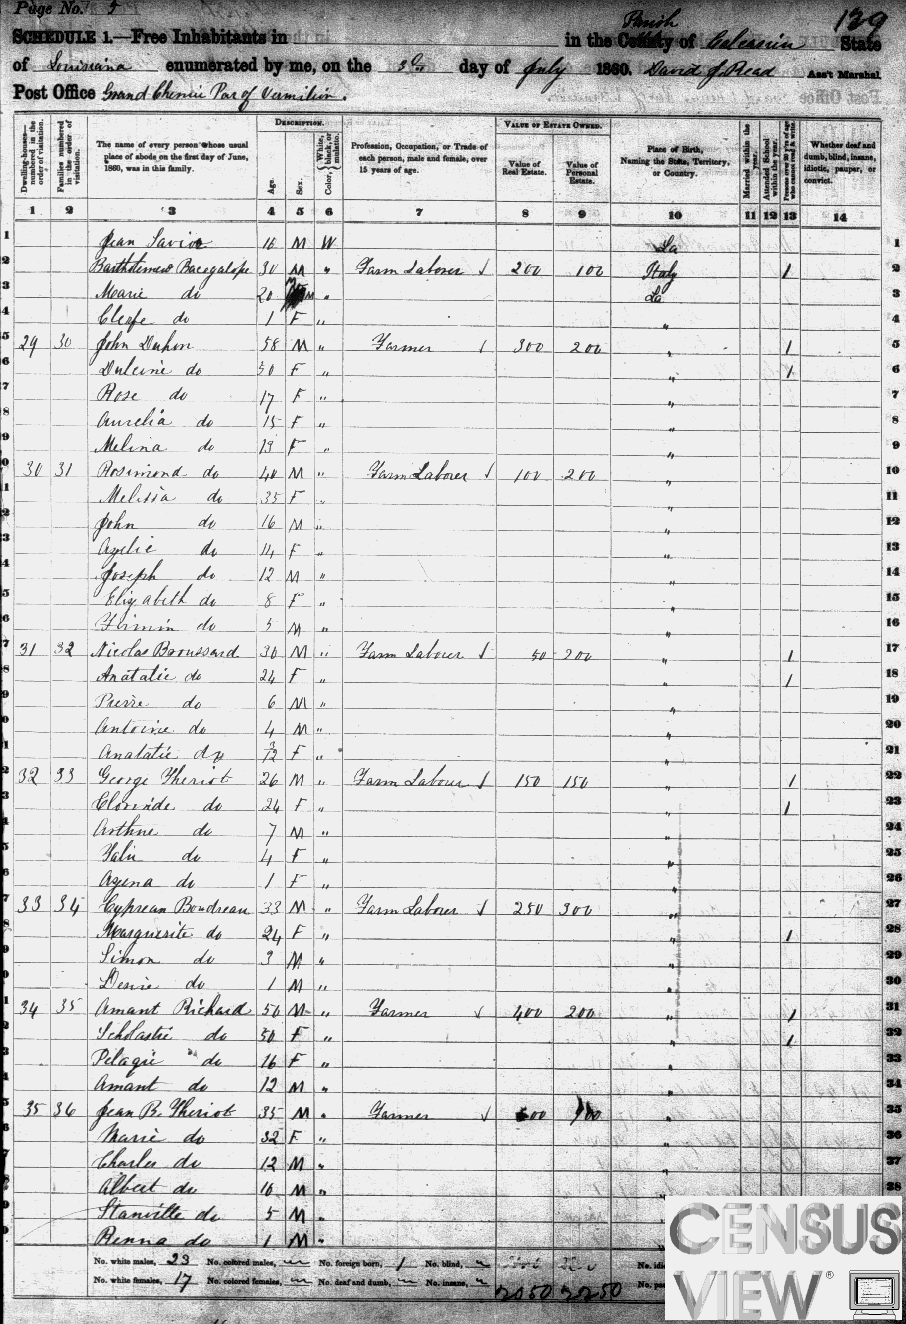 Page No. 5
139
SCHEDULE 1.—Free Inhabitants in in the County Parish of Calcasieu State
of Louisiana enumerated by me, on the 3d day of July 1860. David J. Read Ass't Marshal
Post Office Grand Chenier Par of Vermilion.
Dwelling-houses—numbered in the order of visitation.
Families numbered in the order of visitation.
The name of every person whose usual place of abode on the first day of June, 1860, was in this family.
DESCRIPTION.
Age.
Sex.
Color, White, black, or mulatto.
Profession, Occupation, or Trade of each person, male and female, over 15 years of age.
VALUE OF ESTATE OWNED.
Value of Real Estate.
Value of Personal Estate.
Place of Birth, Naming the State, Territory, or Country.
Married within the year.
Attended School within the year.
Persons over 20 y'rs of age who cannot read & write.
Whether deaf and dumb, blind, insane, idiotic, pauper, or convict.
1 2 3 4 5 6 7 8 9 10 11 12 13 14
1 Jean Savior 16 M W La 1
2 Bartholemew Bacegalope 30 M " Farm Laborer 200 100 Italy 1 2
3 Marie do 20 " La 3
4 Clerfe do 1 F " " 4
5 29 30 John Duhon 58 M " Farmer 300 200 " 1 5
6 Dulcine do 50 F " " 1 6
7 Rose do 17 F " " 7
8 Aurelia do 15 F " " 8
9 Melina do 13 F " " 9
10 30 31 Rosimond do 40 M " Farm Laborer 100 200 " 10
11 Melissa do 35 F " " 11
12 John do 16 M " " 12
13 Azelie do 14 F " " 13
14 Joseph do 12 M " " 14
15 Elizabeth do 8 F " " 15
16 Firmin do 5 M " " 16
17 31 32 Nicolas Broussard 30 M " Farm Laborer 50 200 " 1 17
18 Anatalie do 24 F " " 1 18
19 Pierre do 6 M " " 19
20 Antoine do 4 M " " 20
21 Anatatie do 3/12 F " " 21
22 32 33 George Theriot 26 M " Farm Labour 150 150 " 1 22
23 Clorinde do 24 F " " 1 23
24 Arthne do 7 M " " 24
25 do 4 F " " 25
26 Azena do 1 F " " 26
27 33 34 Cyprean Boudreau 33 M " Farm Laborer 250 300 " 27
28 Marguerite do 24 F " " 1 28
29 Simon do 3 M " " 29
30 Desire do 1 M " " 30
31 34 35 Amant Richard 50 M " Farmer 400 200 " 1 31
32 Scholastie do 50 F " " 1 32
33 Pelagie do 16 F " " 33
34 Amant do 12 M " " 34
35 35 36 Jean B. Theriot 35 M " Farmer 600 900 " 35
36 Marie do 32 F " " 36
37 Charles do 12 M " " 37
38 Albert do 10 M " " 38
Stanville do 5 M "
Renna do 1 M "
No. white males, 23 No. colored males, No. foreign born, 1 No. blind,
No. white females, 17 No. colored females, No. deaf and dumb, No. insane, 2050 2250
CENSUS
VIEW®